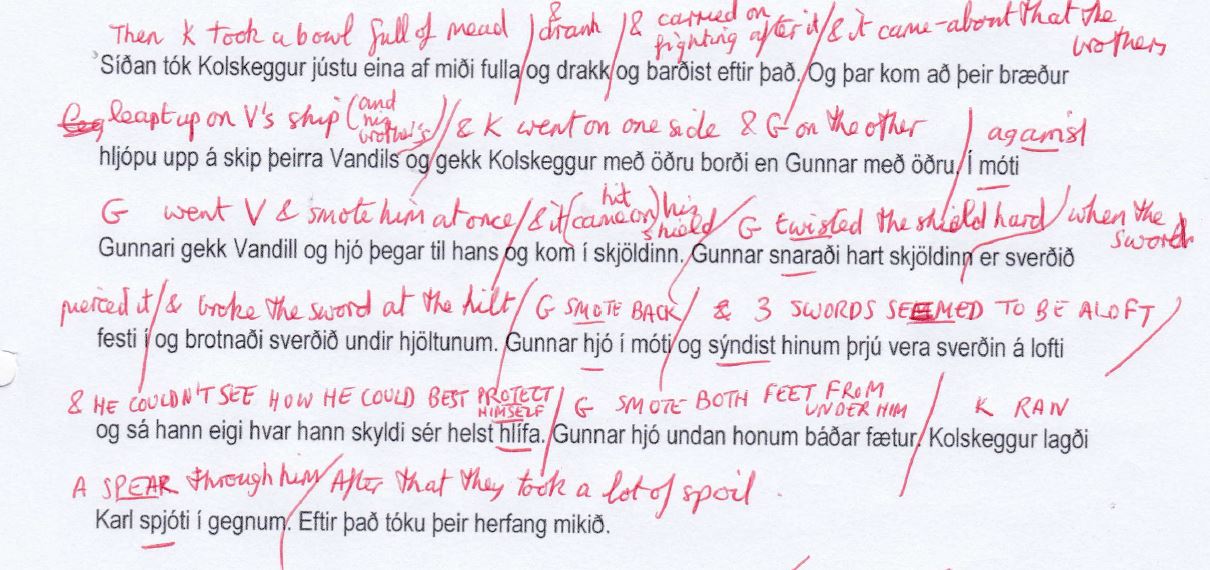 Then K took a bowl full of mead / & drank / & carried on fighting after it / & it came about that the brothers
Síðan tók Kolskeggur jústu eina af miði fulla og drakk og barðist eftir það. Og þar kom að þeir bræður
leapt up on V's ship (and his brother's) / & K went on one side & G on the other / against
hljópu upp á skip þeirra Vandils og gekk Kolskeggur með öðru borði en Gunnar með öðru. Í móti
G went V & smote him at once / & it (came on) hit his shield / G twisted the shield hard / when the sword
Gunnari gekk Vandill og hjó þegar til hans og kom í skjöldinn. Gunnar snaraði hart skjöldinn er sverðið
pierced it / & broke the sword at the hilt / G SMOTE BACK / & 3 SWORDS SEEMED TO BE ALOFT /
festi í og brotnaði sverðið undir hjöltunum. Gunnar hjó í móti og sýndist hinum þrjú vera sverðin á lofti
& HE COULDN'T SEE HOW HE COULD BEST PROTECT HIMSELF / G SMOTE BOTH FEET FROM UNDER HIM / K RAN
og sá hann eigi hvar hann skyldi sér helst hlífa. Gunnar hjó undan honum báðar fætur. Kolskeggur lagði
A SPEAR through him / After that they took a lot of spoil.
Karl spjóti í gegnum. Eftir það tóku þeir herfang mikið.